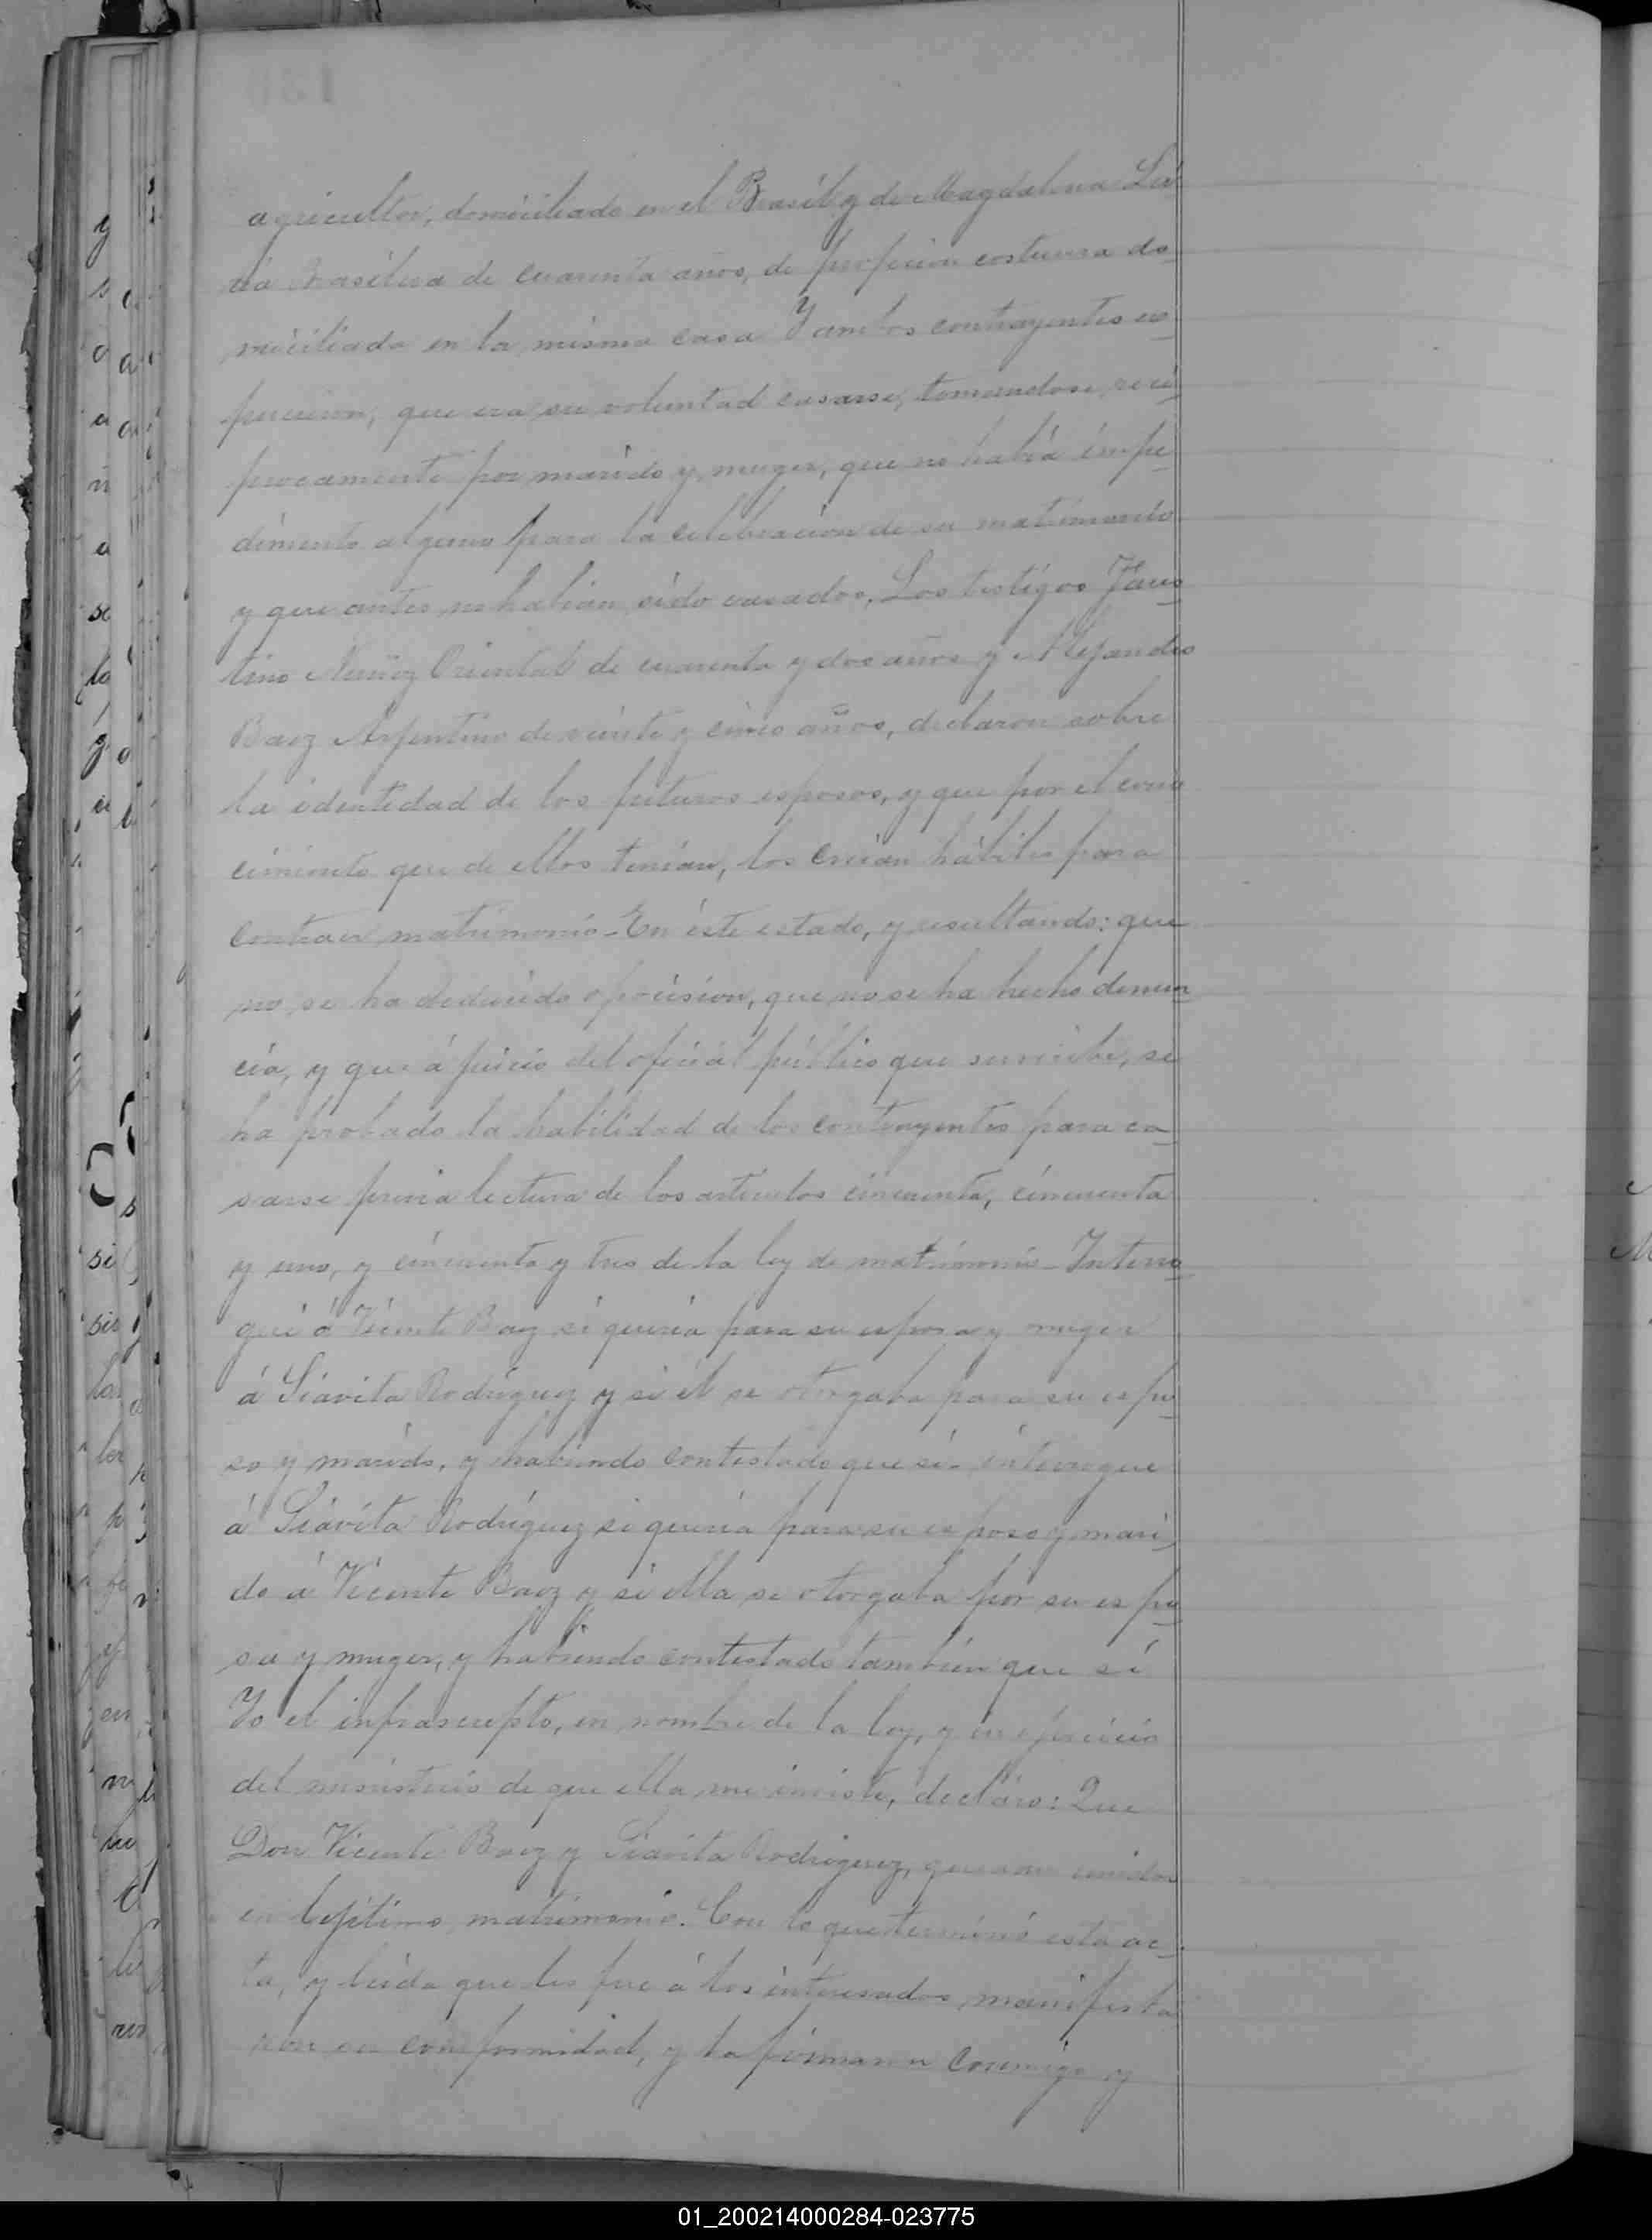 agricultor, domiciliado en el Brasil y de Magdalena
Brasilera de cuarenta años, de profecion costurera do_
miciliada en la misma casa Y ambos contrayentes es_
pusieron, que era su voluntad casarse, tomandose, reci_
procamente por marido y muger, que no habia impe_
dimento alguno para la celebracion de su matrimonio
y que antes no habian sido casados, Los testigos Faus_
tino Nuñez Oriental de cuarenta y dos años y Alejandro
Baez Argentino de veinte y cinco años, declaron sobre
la identidad de los futuros esposos, y que por el cono
cimiento que de ellos tenian, los creian hábiles para
contraer matrimonio_ En éste estado, y resultando: que
no se ha deducido oposision, que no se ha hecho denun_
cia, y que á juicio del oficial público que suscribe, se
ha probado la habilidad de los contrayentes para ca_
sarse previa lectura de los articulos cincuenta, cincuenta
y uno, y cincuenta y tres de la ley de matrimonio_ Interro_
gué á Vicente Baez si queria para su esposa y muger
á Rodriguez y si él se otorgaba para su espo_
so y marido, y habiendo contestado que sí_ interrogue
á Rodriguez si queria para su esposo y mari_
do á Vicente Baez y si ella se otorgaba por su espo_
sa y muger, y habiendo contestado tambien que sí
Yo el infrascripto, en nombre de la ley, y en ejercicio
del ministerio de que ella me inviste, declaro: Que
Don Vicente Baez y Rodriguez, quedan unidos
en lejitimo matrimonio. Con lo que terminó esta ac_
ta, y leida que les fue á los interesados, manifesta
ron su conformidad, y la firmaron conmigo y
01_200214000284-023775